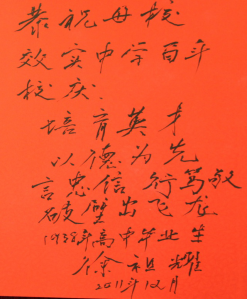 恭祝母校
效实中学百年
校庆
培育英才
以德为先
言忠信 行篤敬
破壁出飞龙
1938年高中毕业生
徐祖耀
2011年12月